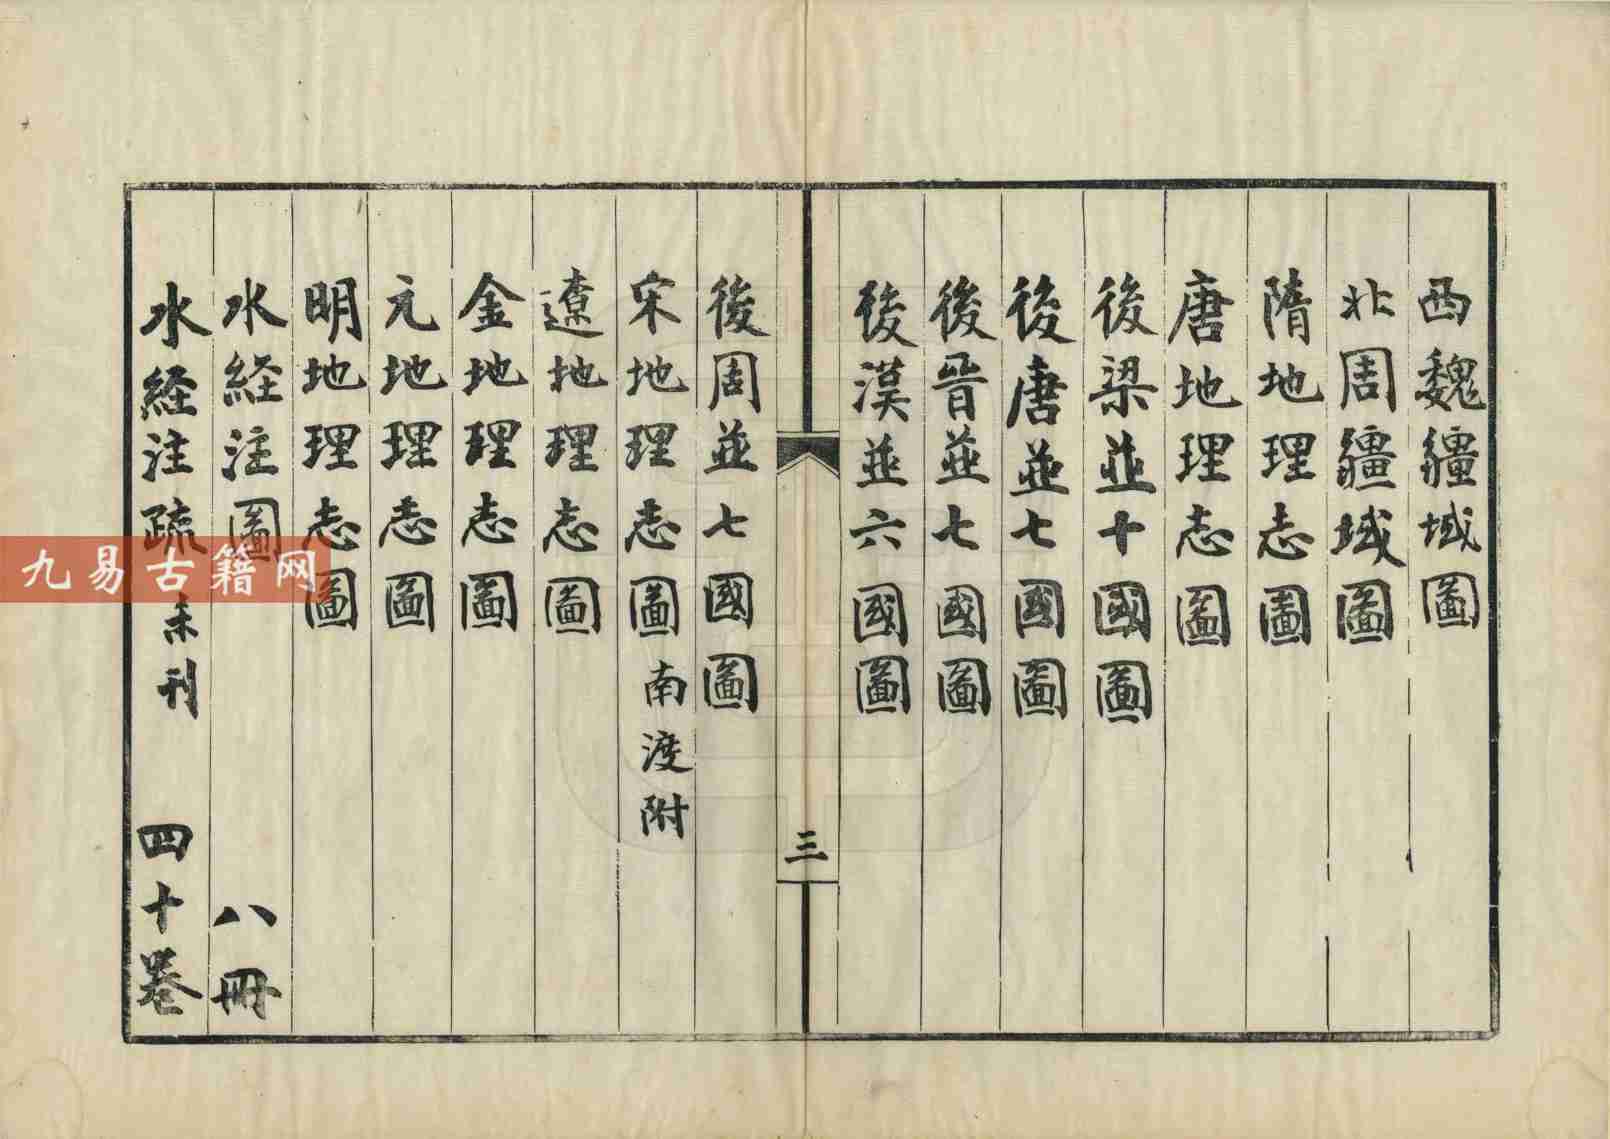 西魏疆域圖
北周疆域圖
隋地理志圖
唐地理志圖
後梁並十國圖
後唐並七國圖
後晉並七國圖
後漢並六國圖
三
後周並七國圖
宋地理志圖 南渡附
遼地理志圖
金地理志圖
元地理志圖
明地理志圖
水経注圖 八冊
水経注疏 未刊 四十卷
九易古籍网